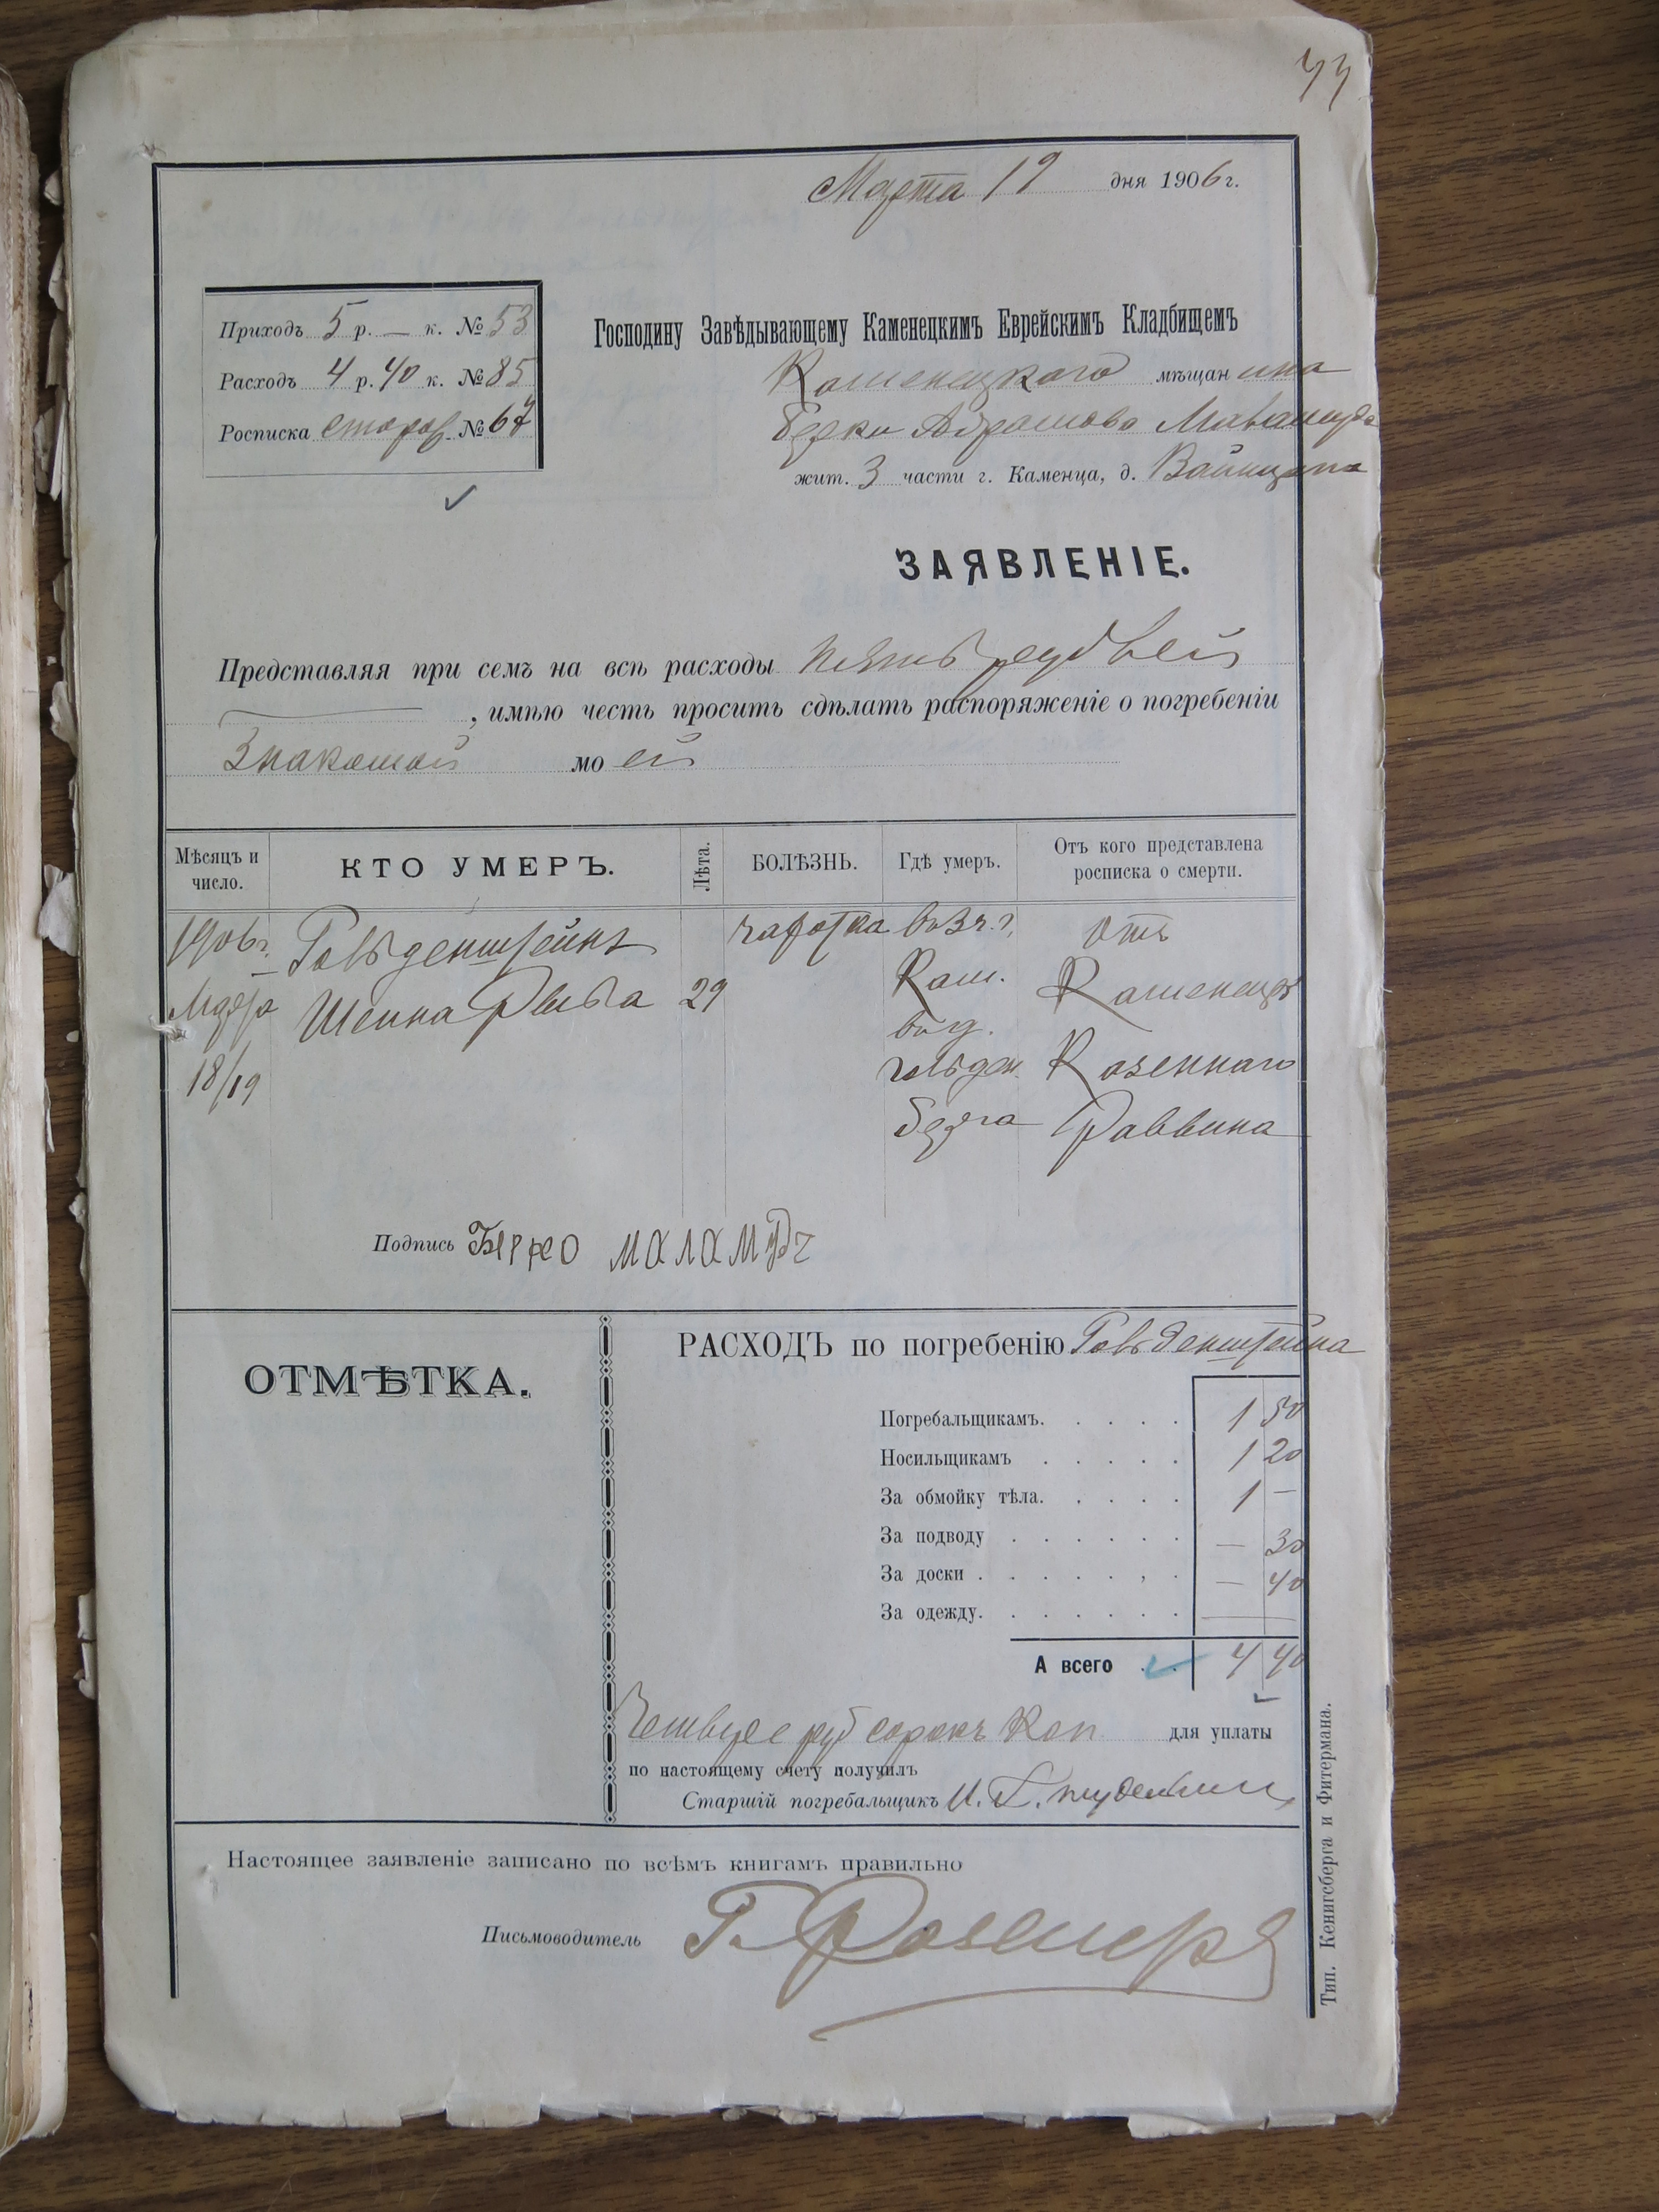 77
Марта 19 дня 1906 г.
Приходъ 5 р. — к. № 53
Расходъ 4 р. 40 к. № 85
Росписка сторож. № 67
Господину Завѣдывающему Каменецкимъ Еврейскимъ Кладбищемъ
Каменецкого мѣщанина
Берки Абрамова Маламуда
жит. 3 части г. Каменца, д. Вайнцапа
ЗАЯВЛЕНІЕ.
Представляя при семъ на всѣ расходы пять рублей
, имѣю честь просить сдѣлать распоряженіе о погребеніи
Знакомой моей
Мѣсяцъ и число.
КТО УМЕРЪ.
Лѣта.
БОЛѢЗНЬ.
Гдѣ умеръ.
Отъ кого представлена росписка о смерти.
1906 г. Гольденштейнъ чахотка въ 3 ч. г. Отъ
Марта Шейна Рыва 29 Кам. Каменец.
18/19 въ д. Казеннаго
гольден Раввина
берга
Подпись Берко маламудъ
ОТМѢТКА.
РАСХОДЪ по погребенію Гольденштейна
Погребальщикамъ. . . . . 1 50
Носильщикамъ . . . . . 1 20
За обмойку тѣла. . . . . 1 —
За подводу . . . . . . — 30
За доски . . . . . , . — 40
За одежду. . . . . . .
А всего . . 4 40
Четыре руб сорокъ Коп для уплаты
по настоящему счету получилъ
Старшій погребальщикъ И.
Настоящее заявленіе записано по всѣмъ книгамъ правильно
Письмоводитель Г.
Тип. Кенигсберга и Фитермана.